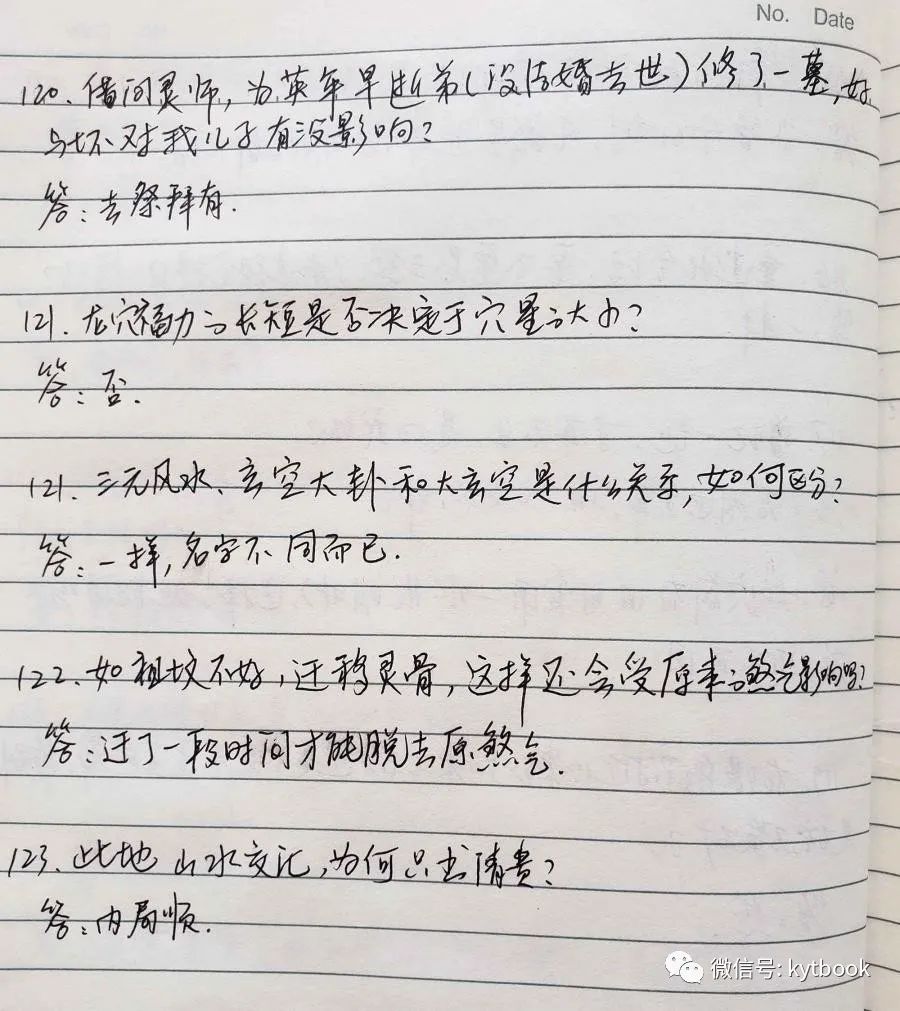 No. Date
120. 借问灵师，为英年早逝弟（没结婚去世）修了一墓，好
与坏对我儿子有没影响？
答：去祭拜有.
121. 龙穴福力之长短是否决定于穴星之大小？
答：否.
121. 三元风水、玄空大卦和大玄空是什么关系，如何区分？
答：一样，名字不同而已.
122. 如祖坟不好，迁移灵骨，这样还会受原来之煞气影响吗？
答：过了一段时间才能脱去原煞气.
123. 此地山水交汇，为何只出清贵？
答：内局顺.
微信号: kytbook